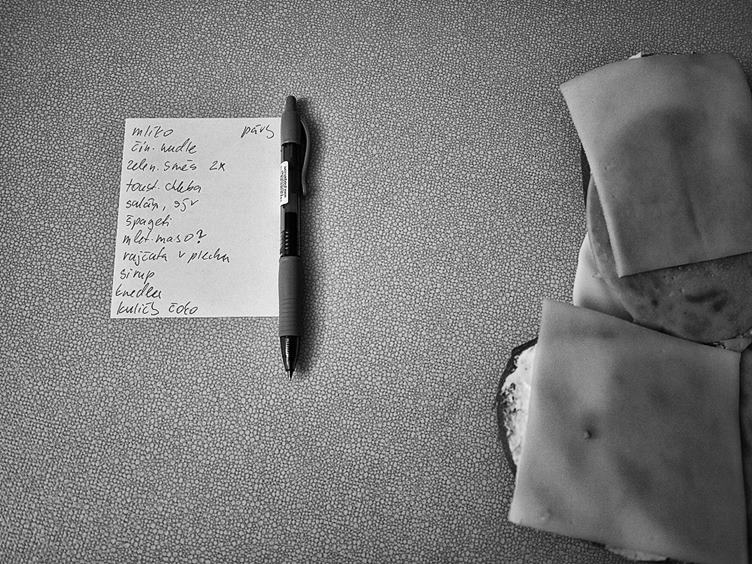 mlíko párky
čín. nudle
zelen. směs 2x
toust. chleba
salám, sýr
špagety
mlet. maso?
rajčata v plechu
sirup
knedlík
kuličky čoko